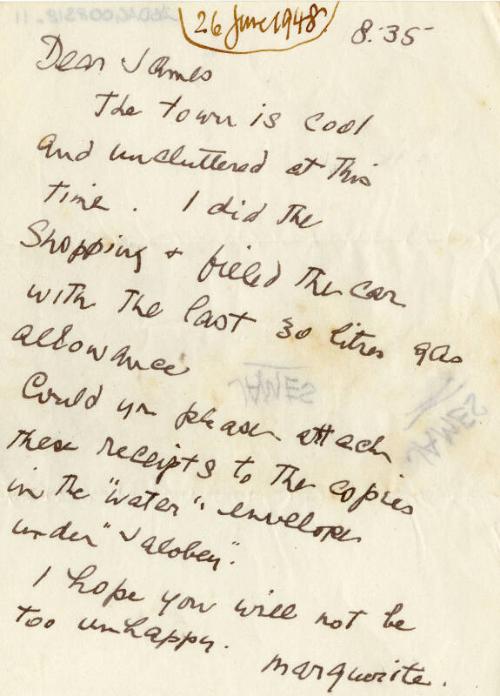 26 June 1948
8.35
Dear James
The town is cool
and uncluttered at this
time. I did the
Shopping + filled the car
with the last 30 litres gas
allowance
Could you please attach
these receipts to the copies
in the "water" envelope
under
I hope you will not be
too unhappy.
Marguerite.
JAMES
JAMES